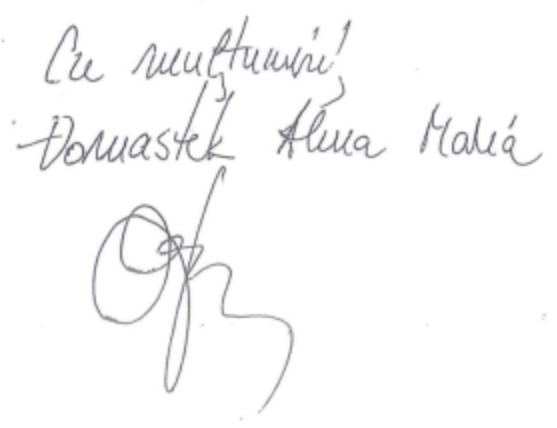 Cu mulțumiri!
Domastek Alina Maria